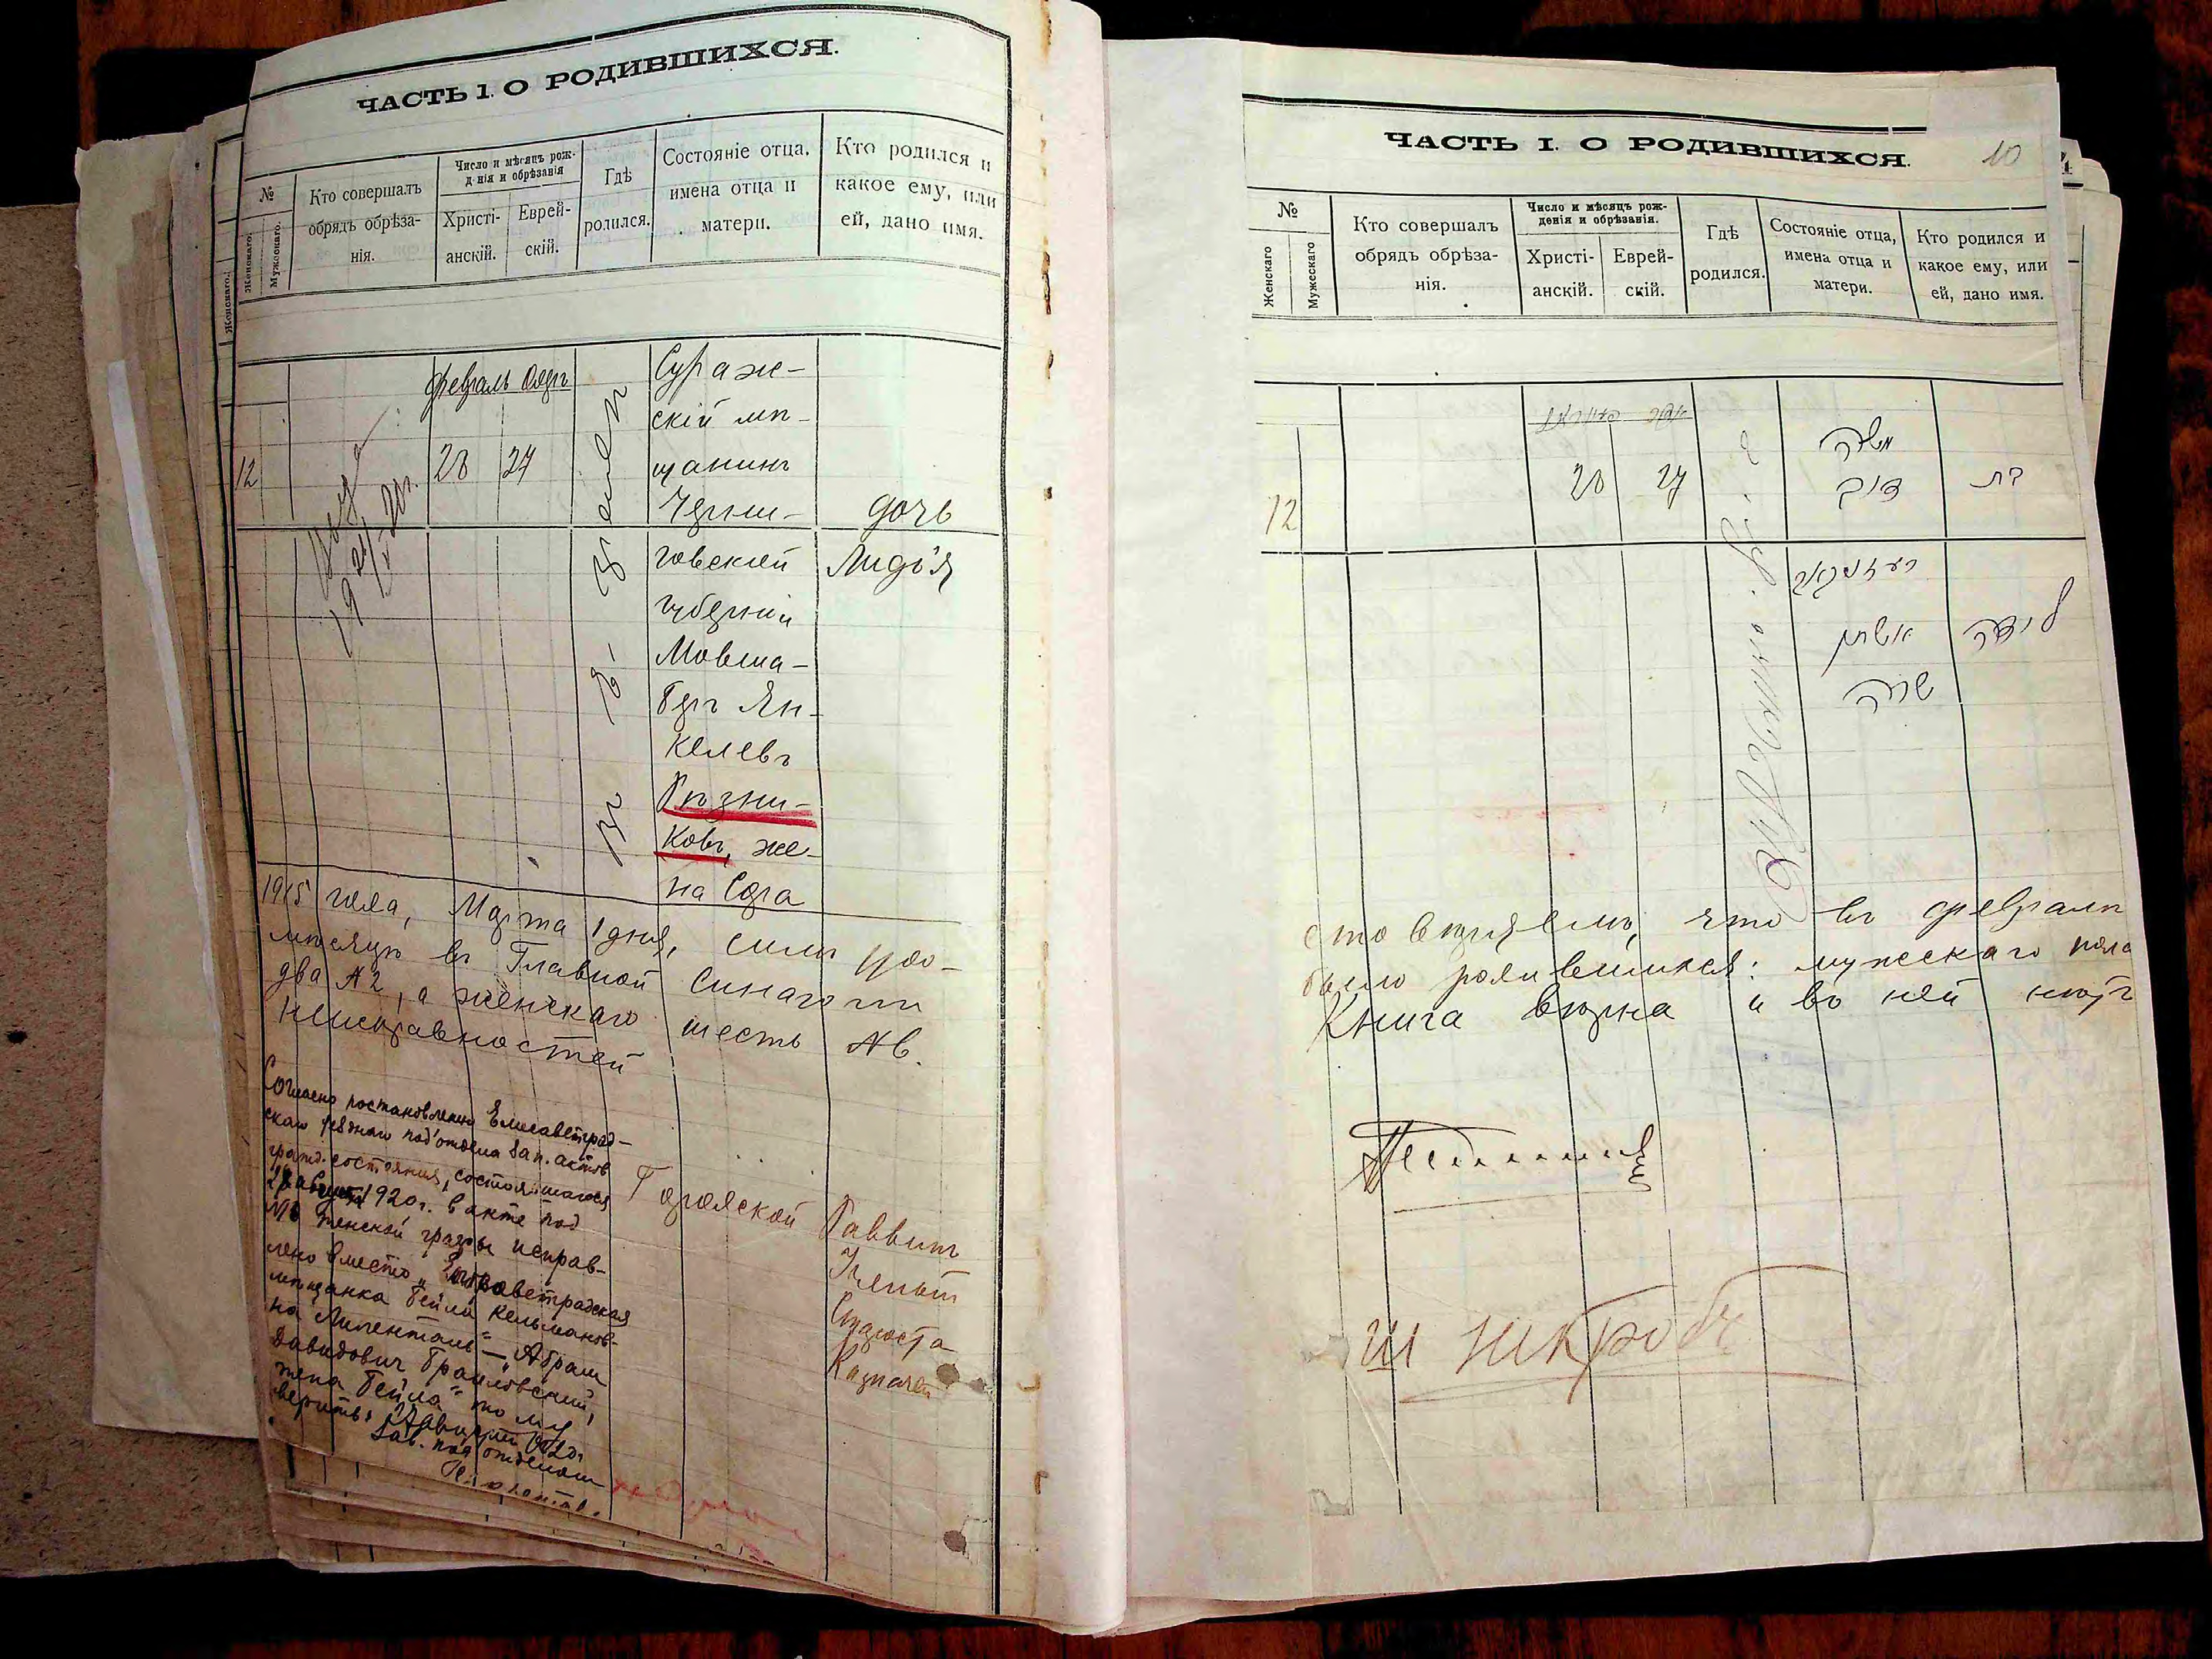 ЧАСТЬ 1. О РОДИВШИХСЯ.
№
Женскаго.
Мужескаго.
Кто совершалъ
обрядъ обрѣза-
нія.
Число и мѣсяцъ рож-
денія и обрѣзанія
Христі-
анскій.
Еврей-
скій.
Гдѣ
родился.
Состояніе отца,
имена отца и
матери.
Кто родился и
какое ему, или
ей, дано имя.
Февраль Одеръ
12
28 27
Сураж-
скій мѣ-
щанинъ
Черни-
говской
губерніи
Мовша-
Беръ Ян-
келевъ
Рѣзни-
ковъ, же-
на Сора
дочь
Лидія
1915 года, Марта 1 дня, симъ удо-
мѣсяцѣ въ Главной Синагогѣ
два № 2, а женскаго шесть № 6.
Неисправностей
Согласно постановлению Елисаветград-
скаго уездного под'отдела зап. актов
гражд. состояния, состоявшагося
1920 г. в акте под
женской графы исправ-
лено вместо „Елисаветградская
мещанка Бейла Кельманов-
на — „Абрам
Давидович Браиловский,
жена Бейла"
верить.
Зав. под'отделом
Городской Раввинъ
Ученый
Староста
Казначей
ЧАСТЬ I. О РОДИВШИХСЯ.
10
№
Женскаго
Мужескаго
Кто совершалъ
обрядъ обрѣза-
нія.
Число и мѣсяцъ рож-
денія и обрѣзанія.
Христі-
анскій.
Еврей-
скій.
Гдѣ
родился.
Состояніе отца,
имена отца и
матери.
Кто родился и
какое ему, или
ей, дано имя.
12
28 27
משה
דוב
בת
רעזניקאוו
אשתו
שרה
לידה
стовѣряемъ, что въ февралѣ
было родившихся: мужескаго пола
Книга вѣрна и во ней нѣтъ